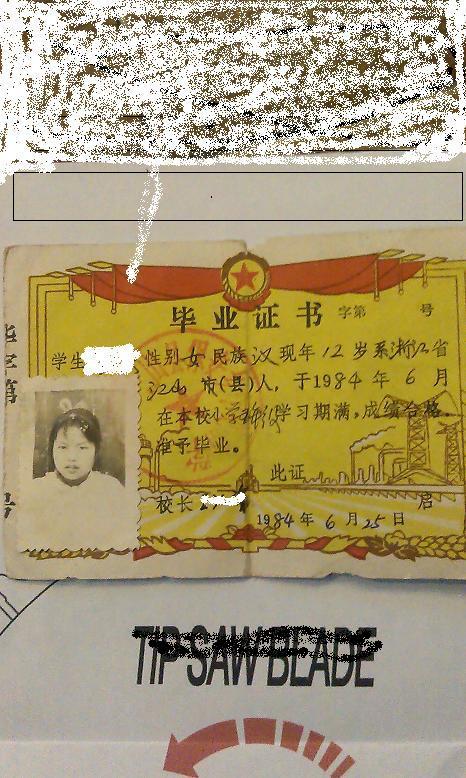 毕业证书 字第 号
毕业
字第
号
学生 性别女民族汉现年12岁系浙江省
市(县)人，于1984年6月
在本校小学 学习期满，成绩合格
准予毕业。
此证
校长
1984年6月25日
TIP SAW BLADE